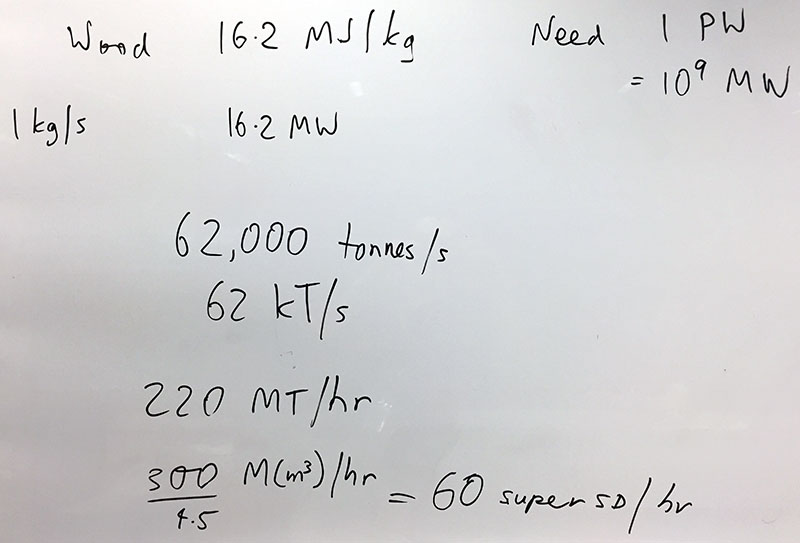 Wood 16.2 MJ/kg Need 1 PW
= 10⁹ MW
1 kg/s 16.2 MW
62,000 tonnes/s
62 kT/s
220 MT/hr
300 M(m³)/hr = 60 super SD/hr
4.5